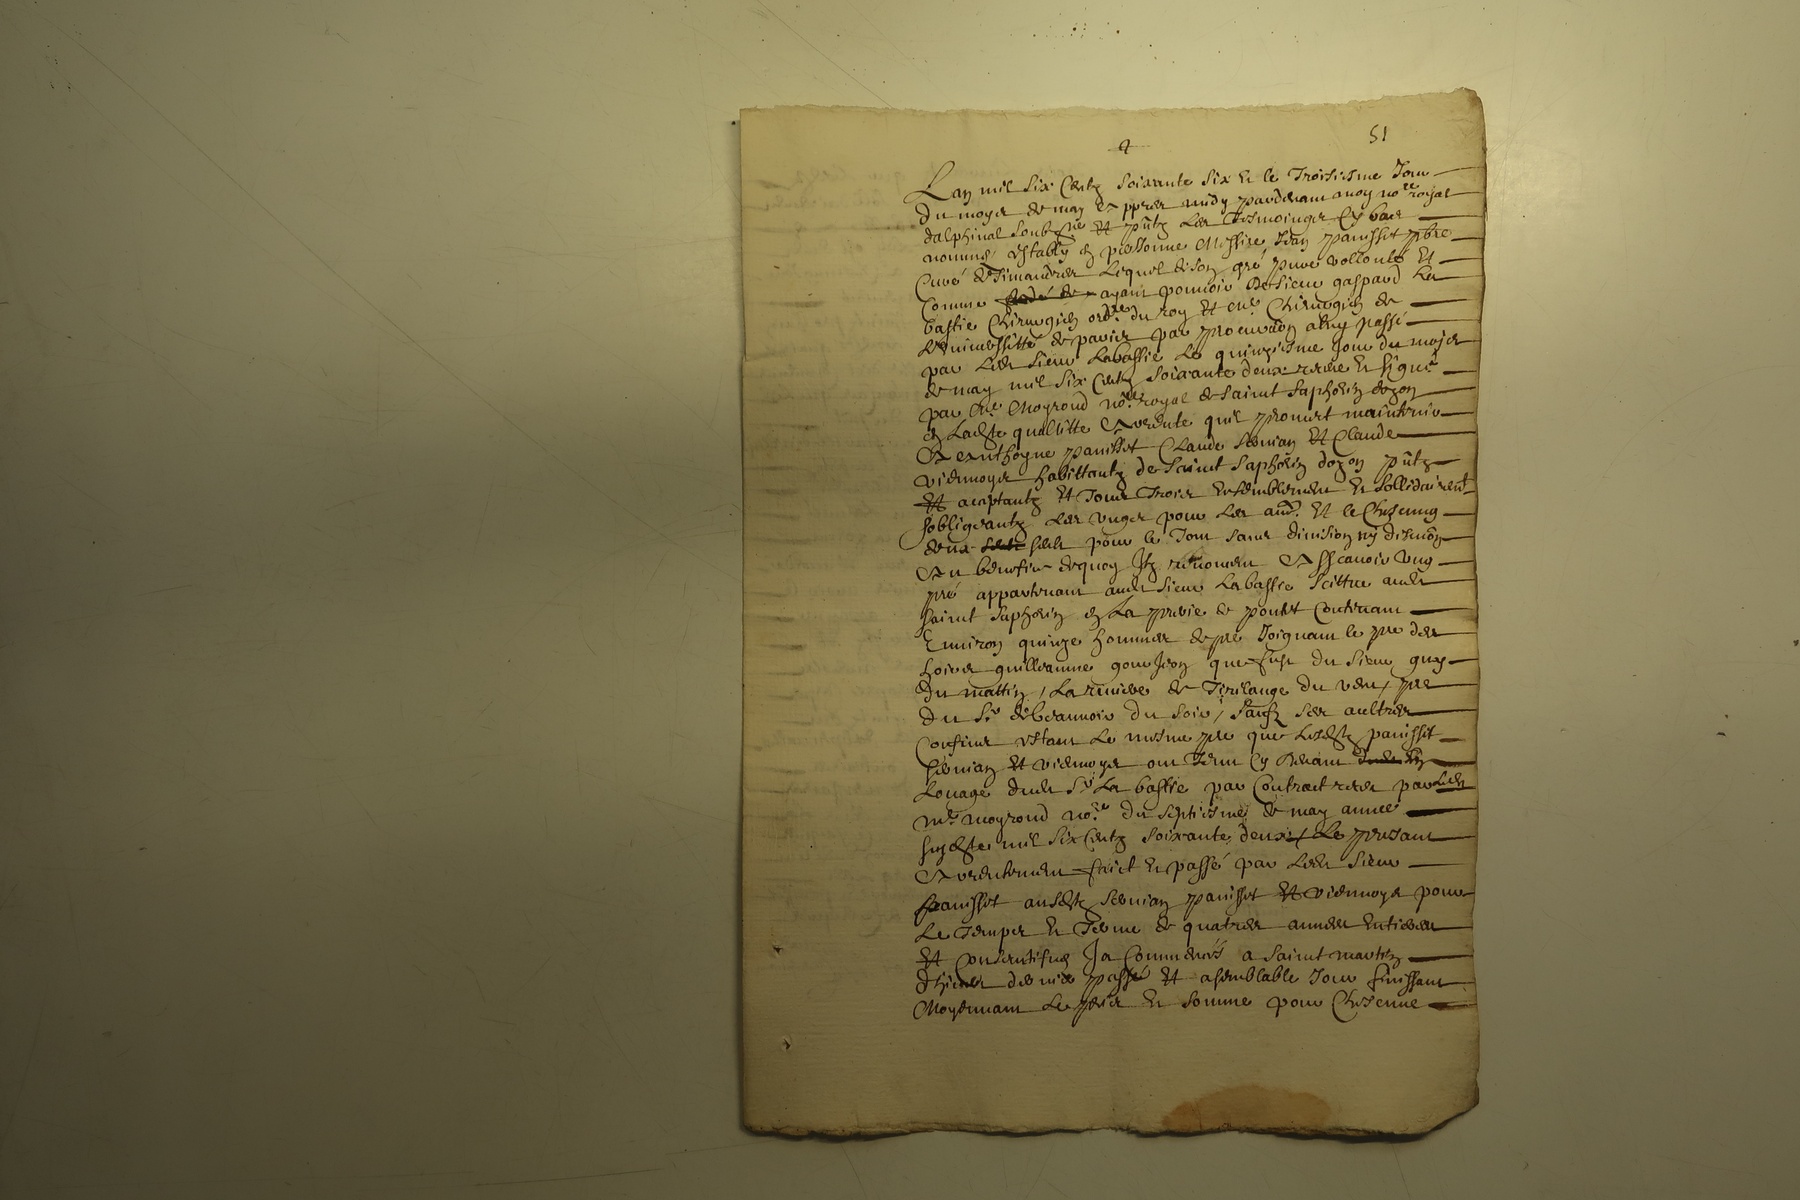 51
Lan mil six Centz soixante six et le Troisiesme Jour
du moys de may appres midy pardevant moy no.re royal
dalphinal soubz.né et pñtz les Tesmoingz Cy bas
nommés estably en personne Messire Jean panisset pbre
Curé de Simandres Lequel de son gré pure vollonté et
Comme ayant pouvoir de sieur gaspard La
bastie Chirurgien ord.re du roy et m.e Chirurgien de
Luniverssitté de paris par procuraõn a luy passé
par Led sieur Labastie Le quinziesme Jour du mois
de may mil six Centz soixante deux recue et signé
par M.e Moyroud no.re royal de Saint Saphorin dozon
en Ladte quallitté arrente quil promet maintenir
A Anthoyne panisset Claude Servian et Claude
viennoys habittantz de Saint Saphorin dozon pñtz
et aceptantz et Tous Trois Ensemblement et sollidairem.t
sobligeantz Les ungs pour Les au.s et le Chescung
deux seul pour le Tout sans division ny discuõn
Au benefice dequoy Ilz renoncent Assçavoir Ung
pré appartenant aud sieur Labastie scittué aud
saint saphorin en La prerie de pontet Contenant
Environ quinze hommes de pré Joignant le pre des
hoirs guilleaume gonJon que fust du sieur guy
du mattin, La riviere de du vent, pre
du S.r du soir, sauf ses aultres
Confins estant Le mesme pre que Lesdtz panisset
Servian et viennoys ont Tenu Cy devant
Louage dud S.r La bastie par Contract receu par Led
m.e moyroud no.re du septiesme de may année
susdte mil six Centz soixante deux, Le present
Arrentement faict et passé par Led sieur
panisset ausdtz Servian panisset et viennoys pour
Le Temps et Terme de quatre années Entieres
et Consecutifves Ja Commencés a saint martin
dhiver dernier passé et a semblable Jour finissant
Moyennant Le pris et somme pour Chesenne